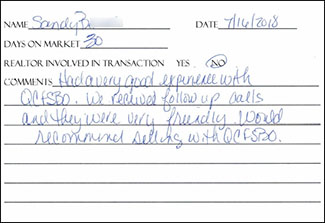 NAME Sandy B DATE 7/16/2018
DAYS ON MARKET 30
REALTOR INVOLVED IN TRANSACTION YES . NO
COMMENTS Had a very good experience with
QCFSBO. We received follow up calls
and they were very friendly. Would
recommend selling with QCFSBO.